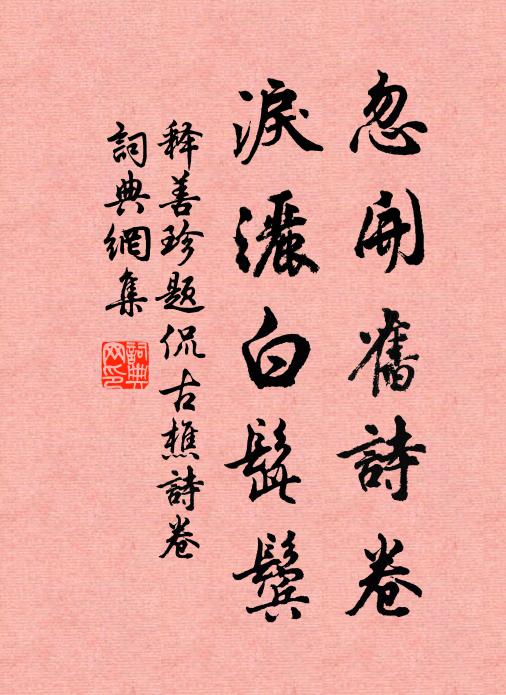 忽開舊詩卷
淚灑白髭鬢
释善珍題侃古樵詩卷
詞典網集
詞典
网印